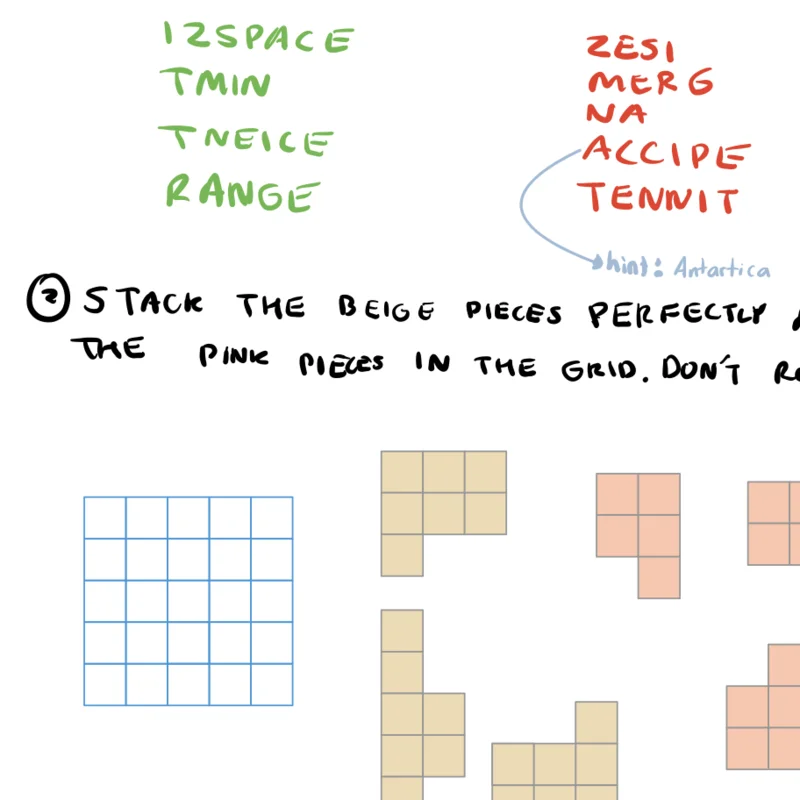 IZSPACE
TMIN
TNEICE
RANGE
ZESI
MERG
NA
ACCIPE
TENNIT
hint: Antartica
2 STACK THE BEIGE PIECES PERFECTLY
THE PINK PIECES IN THE GRID. DON'T